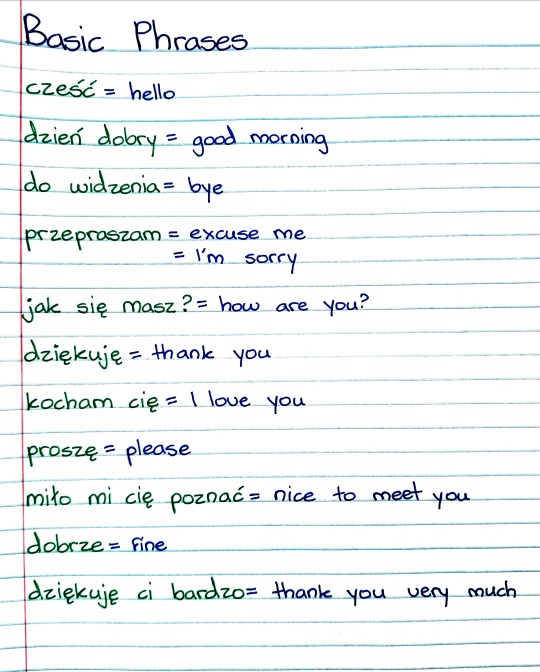 Basic Phrases
cześć = hello
dzień dobry = good morning
do widzenia = bye
przepraszam = excuse me
= I'm sorry
jak się masz? = how are you?
dziękuję = thank you
kocham cię = I love you
proszę = please
miło mi cię poznać = nice to meet you
dobrze = fine
dziękuję ci bardzo = thank you very much